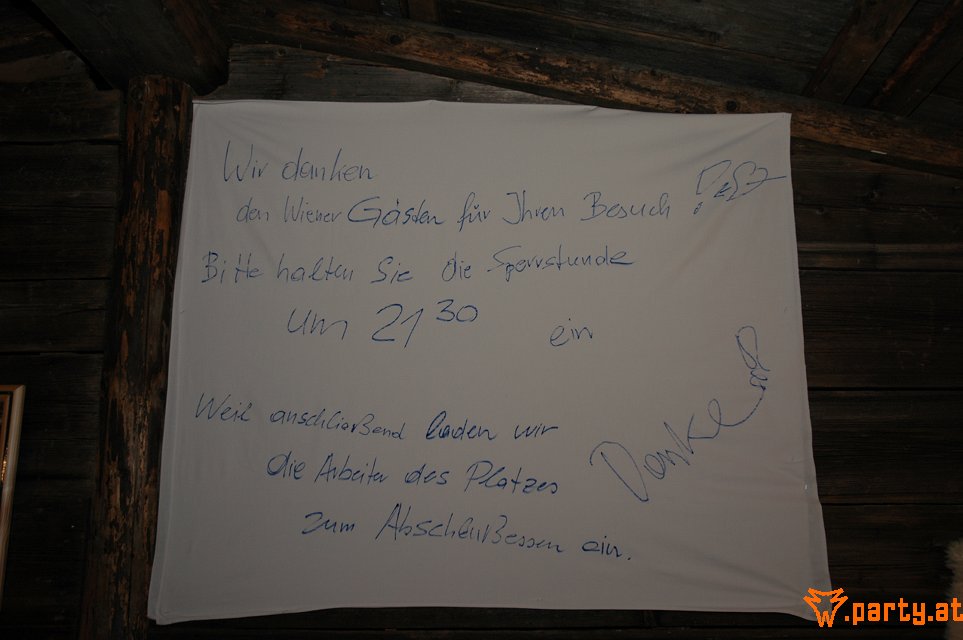 Wir danken
den Wiener Gästen für Ihren Besuch!
Bitte halten Sie die Sperrstunde
um 21 30 ein
Weil anschließend laden wir
die Arbeiter des Platzes
zum Abschlußessen ein.
Danke
party.at